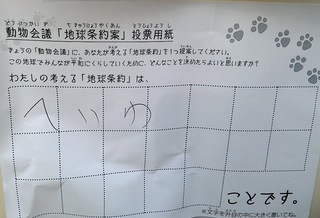 どうぶつかいぎ ちきゅうじょうやくあん とうひょうようし
動物会議「地球条約案」投票用紙
きょうの「動物会議」に、あなたが考える「地球条約」を1つ提案してください。
この地球でみんなが平和にくらしていくために、どんなことを決めたらよいと思いますか?
わたしの考える「地球条約」は、
へいわ
ことです。
※文字を升目の中に大きく書いてね。